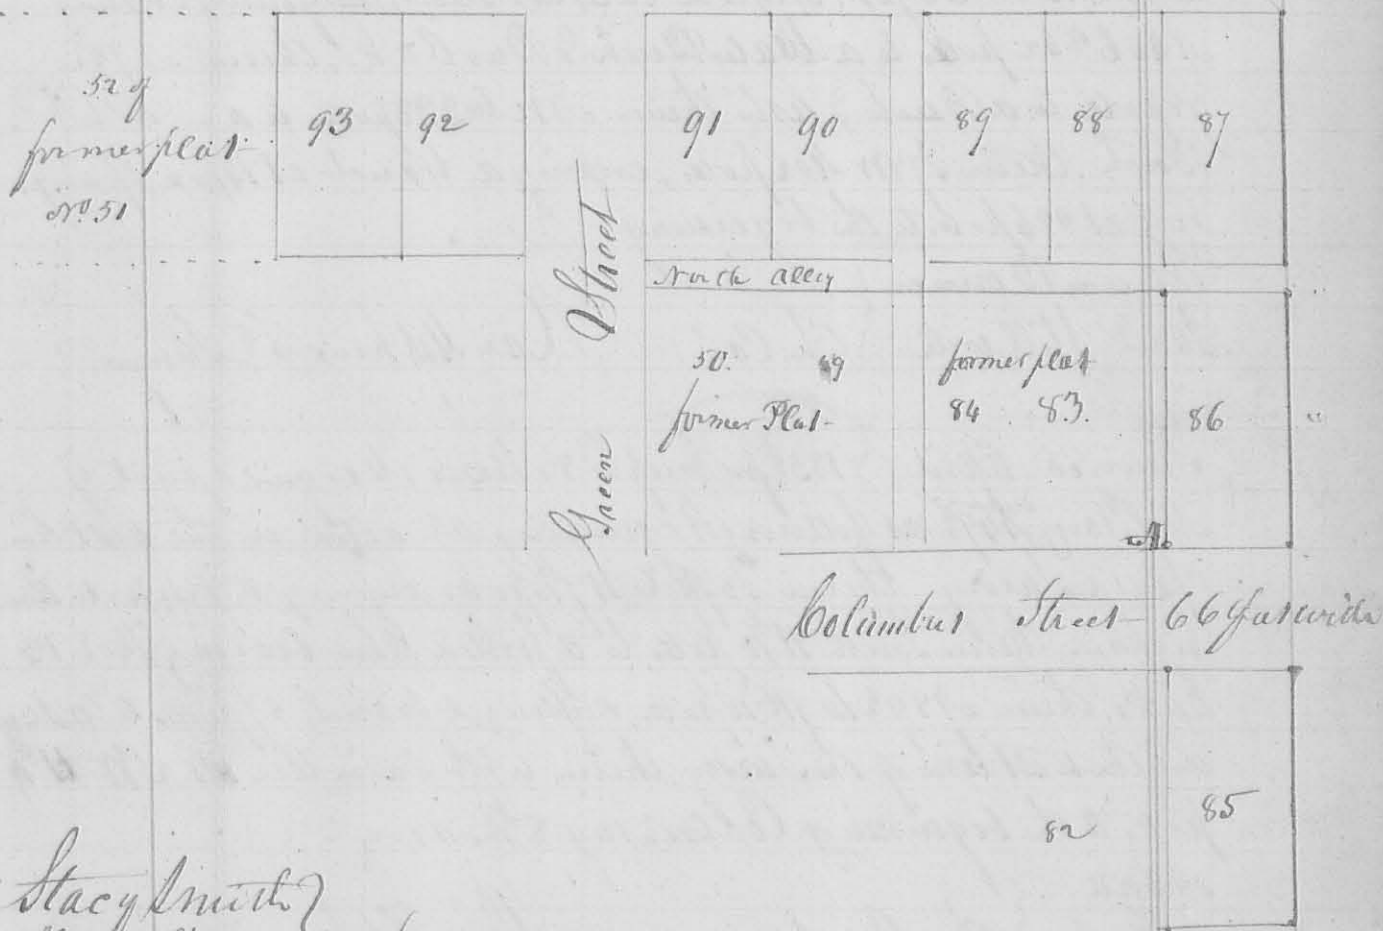 52 of
former plat
No 51
93 92
91 90
89 88 87
Green Street
North Alley
50. 49
former Plat
former plat
84 83.
86
A.
Columbus Street 66 feet wide
85
82
Stacy Smith